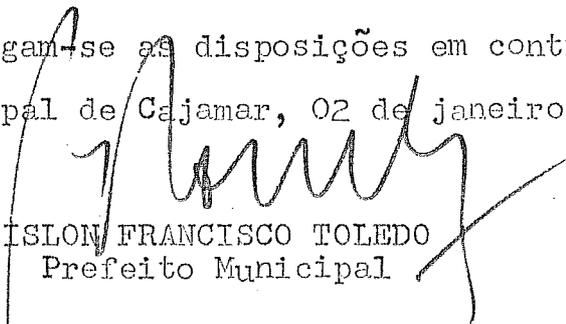 gam-se as disposições em cont
pal de Cajamar, 02 de janeiro
ISLON FRANCISCO TOLEDO
Prefeito Municipal